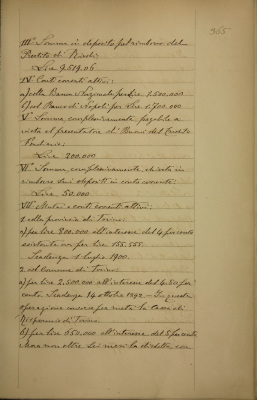 365
III° Somme in deposito pel rimborso del
Prestito di Rivoli:
Lire 9519.06
IV Conti correnti attivi:
a) colla Banca Nazionale per Lire 1.500.000
b) col Banco di Napoli per Lire 1.700.000
V° Somma, complessivamente, pagabile a
vista al presentatore di Buoni del Credito
Fondiario:
Lire 200.000
VI° Somma, complessivamente, chiesta in
rimborso dai depositi in conto corrente:
Lire 50.000
VII° Mutui e conti correnti attivi:
1. colla provincia di Torino:
a) per lire 800.000 all'interesse del 4 per cento
esistente ora per lire 155.555.
Scadenza 1 luglio 1900.
2. col Comune di Torino:
a) per lire 2,500.000 all'interesse del 4.50 per
cento. Scadenza 14 ottobre 1942 - In questa
operazione concorse per metà la Cassa di
Risparmio di Torino
b) per lire 650.000 all'interesse del 5 per cento
oltre sei mesi la